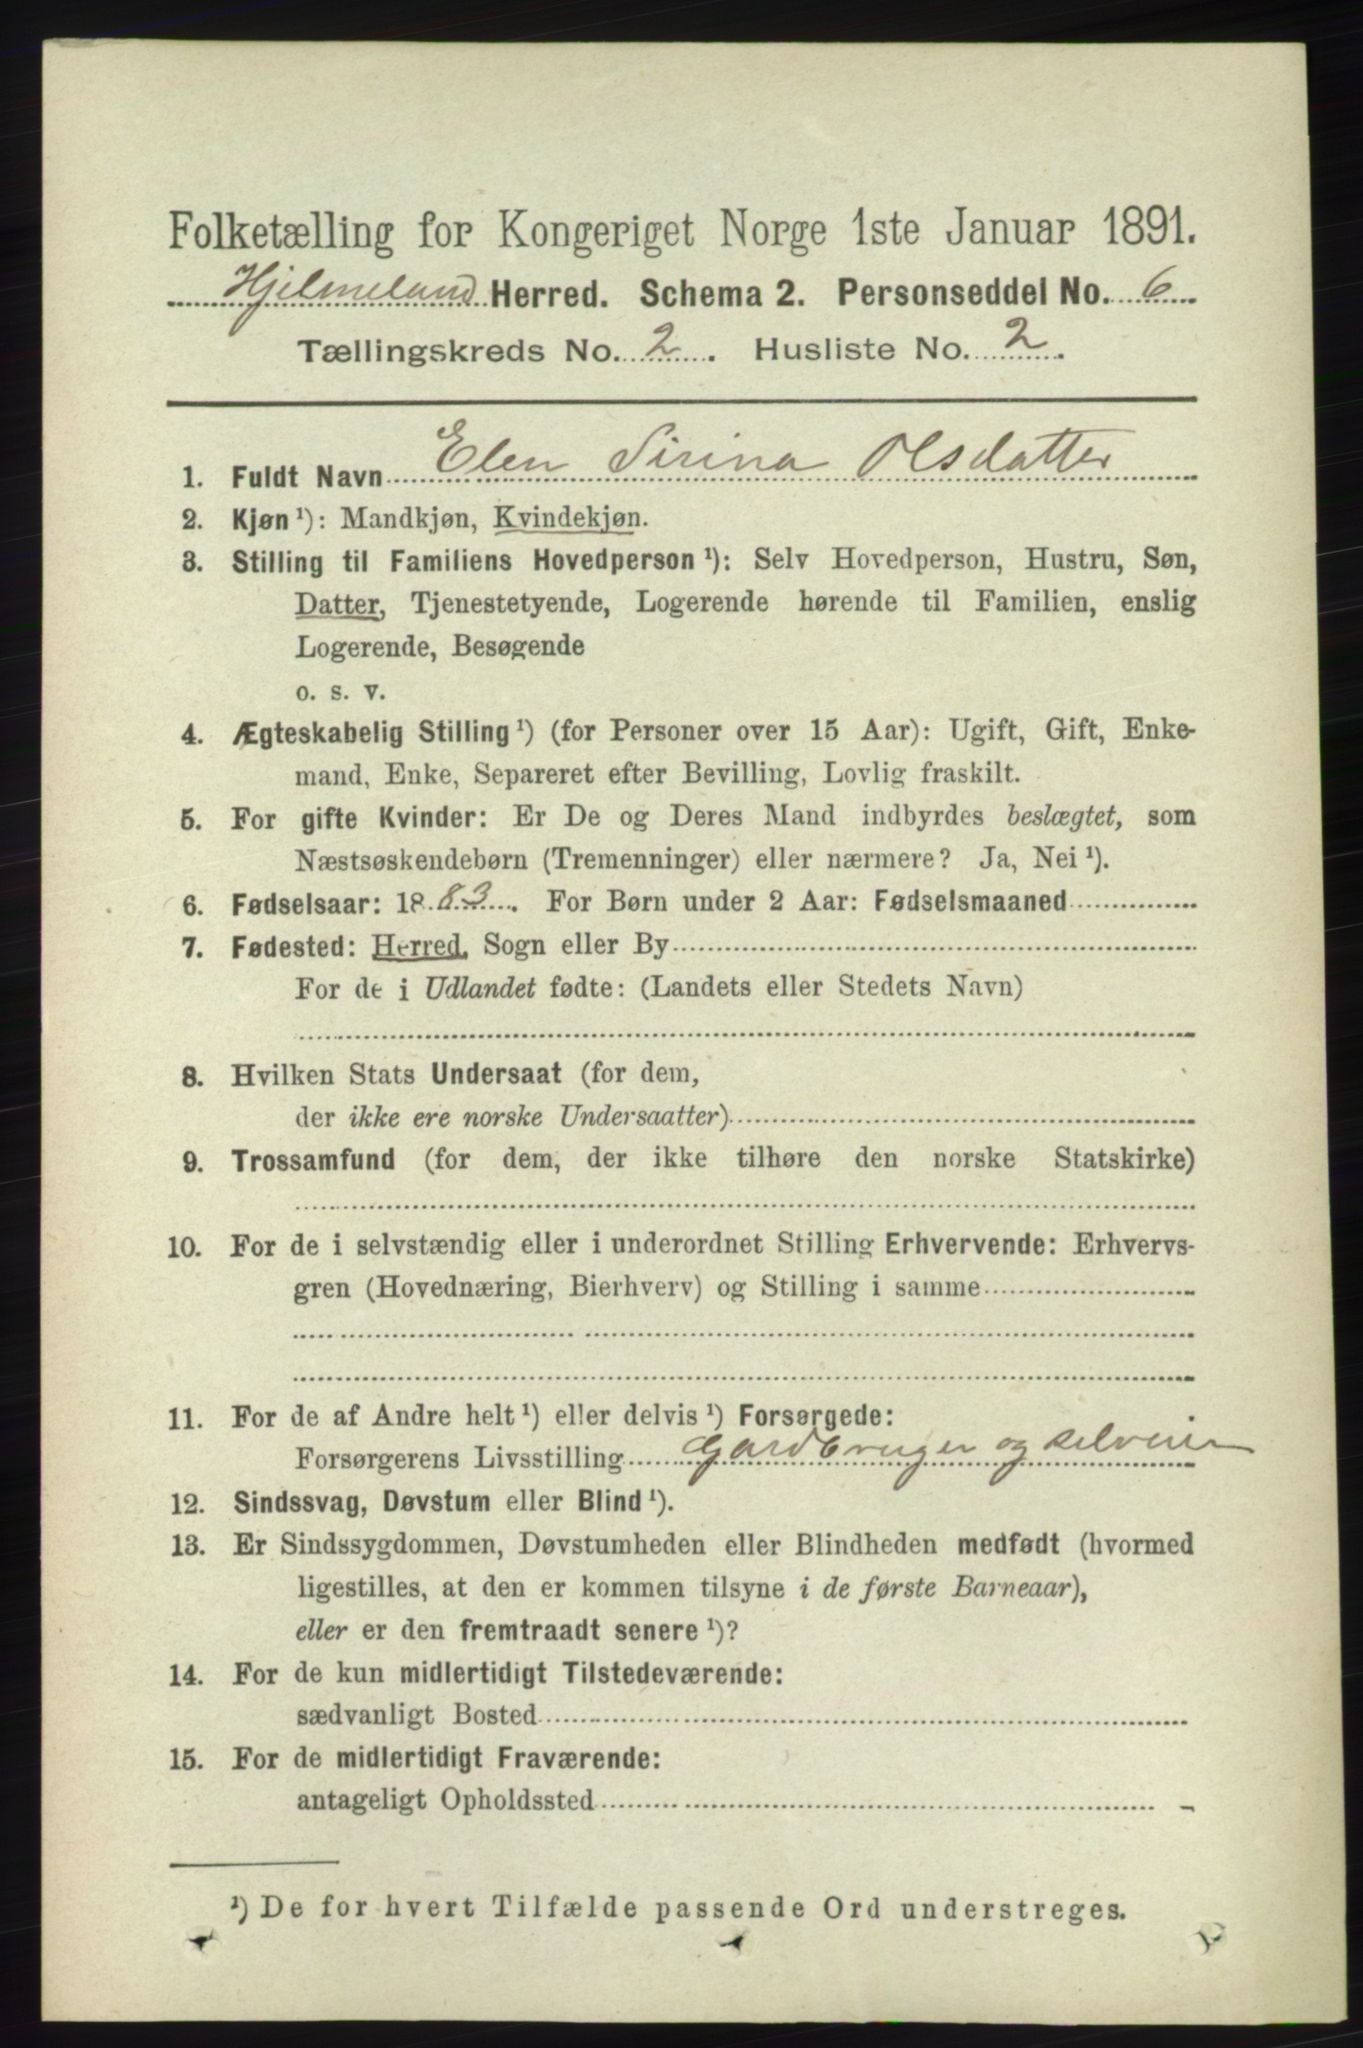 Folketælling for Kongeriget Norge 1ste Januar 1891.
Hjelmeland Herred. Schema 2. Personseddel No. 6
Tællingskreds No. 2. Husliste No. 2.
1. Fuldt Navn Elen Sirina Olsdatter
2. Kjøn ¹): Mandkjøn, Kvindekjøn.
3. Stilling til Familiens Hovedperson ¹): Selv Hovedperson, Hustru, Søn,
Datter, Tjenestetyende, Logerende hørende til Familien, enslig
Logerende, Besøgende
o. s. v.
4. Ægteskabelig Stilling ¹) (for Personer over 15 Aar): Ugift, Gift, Enke-
mand, Enke, Separeret efter Bevilling, Lovlig fraskilt.
5. For gifte Kvinder: Er De og Deres Mand indbyrdes beslægtet, som
Næstsøskendebørn (Tremenninger) eller nærmere? Ja, Nei ¹).
6. Fødselsaar: 1883. For Børn under 2 Aar: Fødselsmaaned
7. Fødested: Herred, Sogn eller By
For de i Udlandet fødte: (Landets eller Stedets Navn)
8. Hvilken Stats Undersaat (for dem,
der ikke ere norske Undersaatter)
9. Trossamfund (for dem, der ikke tilhøre den norske Statskirke)
10. For de i selvstændig eller i underordnet Stilling Erhvervende: Erhvervs-
gren (Hovednæring, Bierhverv) og Stilling i samme
11. For de af Andre helt ¹) eller delvis ¹) Forsørgede:
Forsørgerens Livsstilling Gardbruger og selveier
12. Sindssvag, Døvstum eller Blind ¹).
13. Er Sindssygdommen, Døvstumheden eller Blindheden medfødt (hvormed
ligestilles, at den er kommen tilsyne i de første Barneaar),
eller er den fremtraadt senere ¹)?
14. For de kun midlertidigt Tilstedeværende:
sædvanligt Bosted
15. For de midlertidigt Fraværende:
antageligt Opholdssted
¹) De for hvert Tilfælde passende Ord understreges.